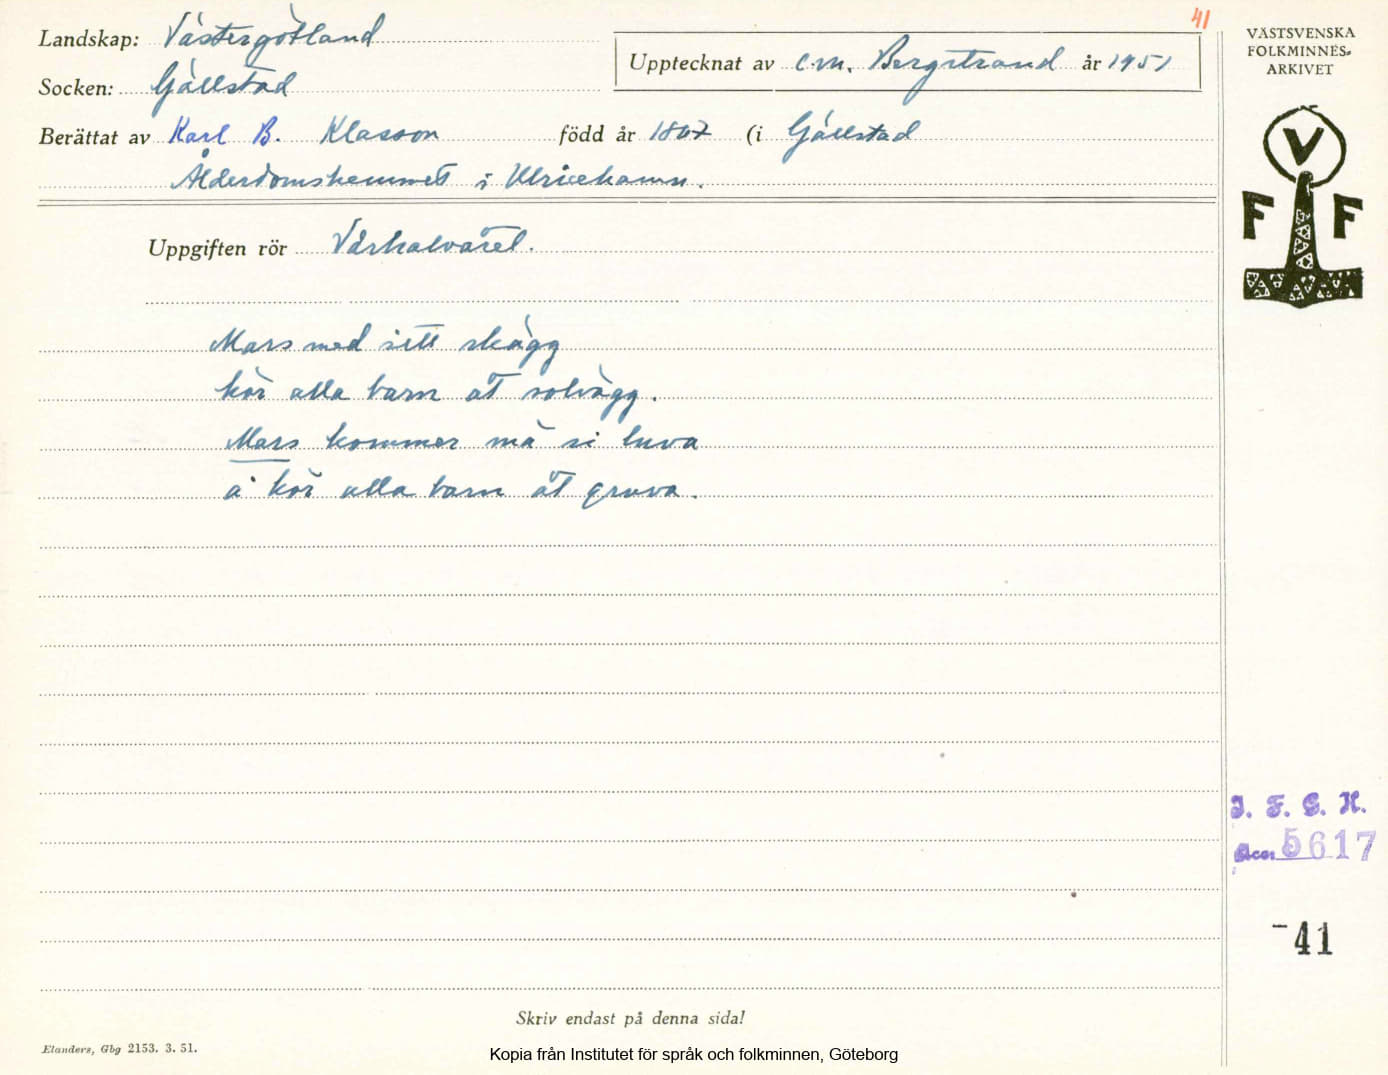 41
Landskap: Västergötland
Upptecknat av C.M. Bergstrand år 1951
Socken: Gällstad
Berättat av Karl B. Klasson född år 1867 (i Gällstad
Ålderdomshemmet i Ulricehamn.
Uppgiften rör Vårkalvätet.
Mars med sitt skägg
kör alla barn åt solvägg.
Mars kommer mä si luva
å kör alla barn åt gruva.
VÄSTSVENSKA
FOLKMINNES-
ARKIVET
V
F F
I. F. G. H.
Acc. 5617
-41
Skriv endast på denna sida!
Elanders, Gbg 2153. 3. 51.
Kopia från Institutet för språk och folkminnen, Göteborg